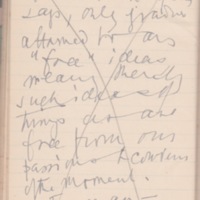 say, only gradua
attained to our
"free" ideas
means merely
such ideas of
things as are
free from our
passions & concerns
of the moment.